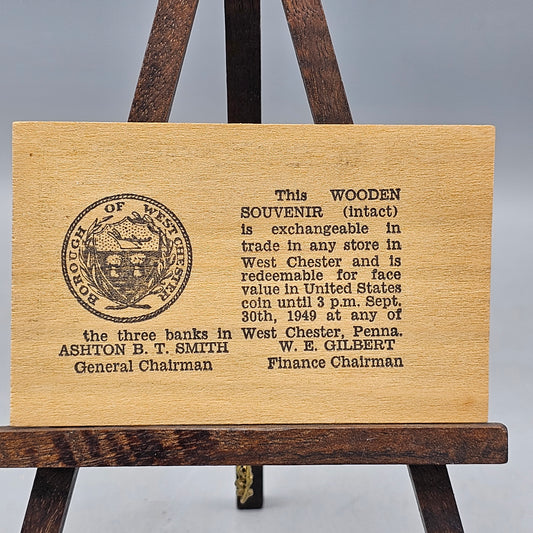 BOROUGH OF WEST CHESTER
This WOODEN
SOUVENIR (intact)
is exchangeable in
trade in any store in
West Chester and is
redeemable for face
value in United States
coin until 3 p.m. Sept.
30th, 1949 at any of
the three banks in West Chester, Penna.
ASHTON B. T. SMITH
General Chairman
W. E. GILBERT
Finance Chairman